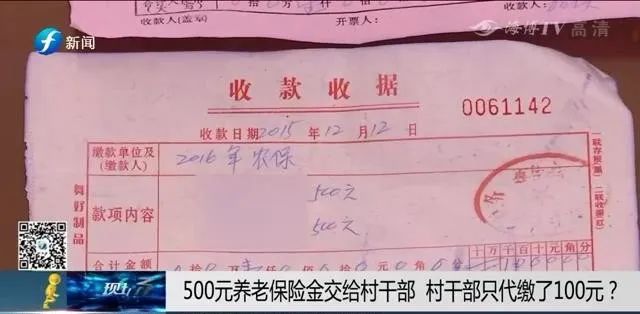 收款人(盖章)
开票人:
新闻
海博TV高清
收款收据
0061142
收款日期2015年12月12日
缴款单位及(缴款人)
2016年农保
500元
款项内容
500元
舞好制品
十万千百十元角分
合计金额
现场
500元养老保险金交给村干部 村干部只代缴了100元?